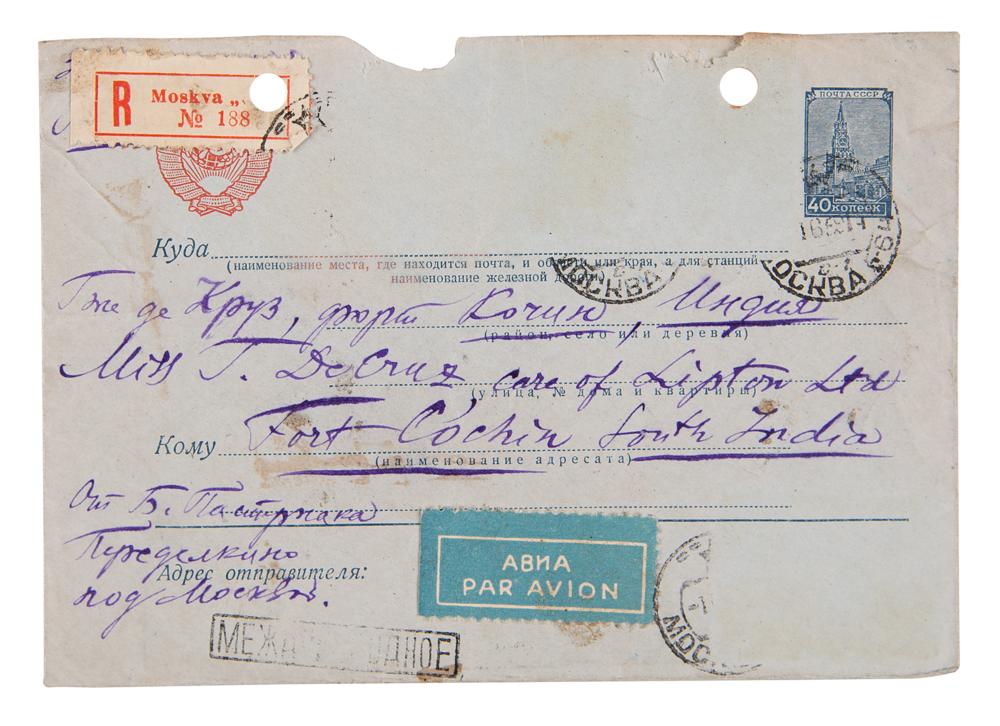 R Moskva „
№ 188
ПОЧТА СССР
40 копеек
Куда
(наименование места, где находится почта, и области или края, а для станций
наименование железной дороги)
МОСКВА
МОСКВА
Г-же де Круз, форт Кочин, Индия
(район, село или деревня)
Miss T. DeCruz care of Lipton Ltd
(улица, № дома и квартиры)
Fort Cochin South India
Кому
(наименование адресата)
От Б. Пастернака
Переделкино
Адрес отправителя:
под Москвой.
АВИА
PAR AVION
МОС
МЕЖ ДНОЕ